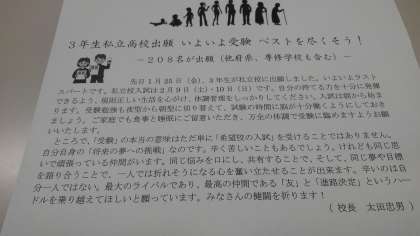 3年生私立高校出願 いよいよ受験 ベストを尽くそう！
－２０８名が出願（他府県、専修学校も含む）－
先日１月２５日（金）、３年生が私立校に出願しました。いよいよラスト
スパートです。私立校入試は２月９日（土）・10日（日）です。自分の持てる力を十分に発揮
できるよう、規則正しい生活を心がけ、体調管理をしっかりしてください。入試は朝から始ま
ります。受験勉強も夜型から朝型に切り替えて、試験の時間に脳が十分働くようにしておき
ましょう。ご家庭でも食事と睡眠にご留意いただき、万全の体調で受験に臨めますようお願
いいたします。
ところで、「受験」の本当の意味はただ単に「希望校の入試」を受けることではありません。
自分自身の「将来の夢への挑戦」なのです。辛く苦しいこともあるでしょう。けれども同じ思
いで頑張っている仲間がいます。同じ悩みを口にし、共有することで、そして、同じ夢や目標
を語り合うことで、一人では折れそうになる心を奮い立たせることが出来ます。辛いのは自
分一人ではない。最大のライバルであり、最高の仲間である「友」と「進路決定」というハー
ドルを乗り越えてほしいと願っています。みなさんの健闘を祈ります！
（校長 太田忠男）